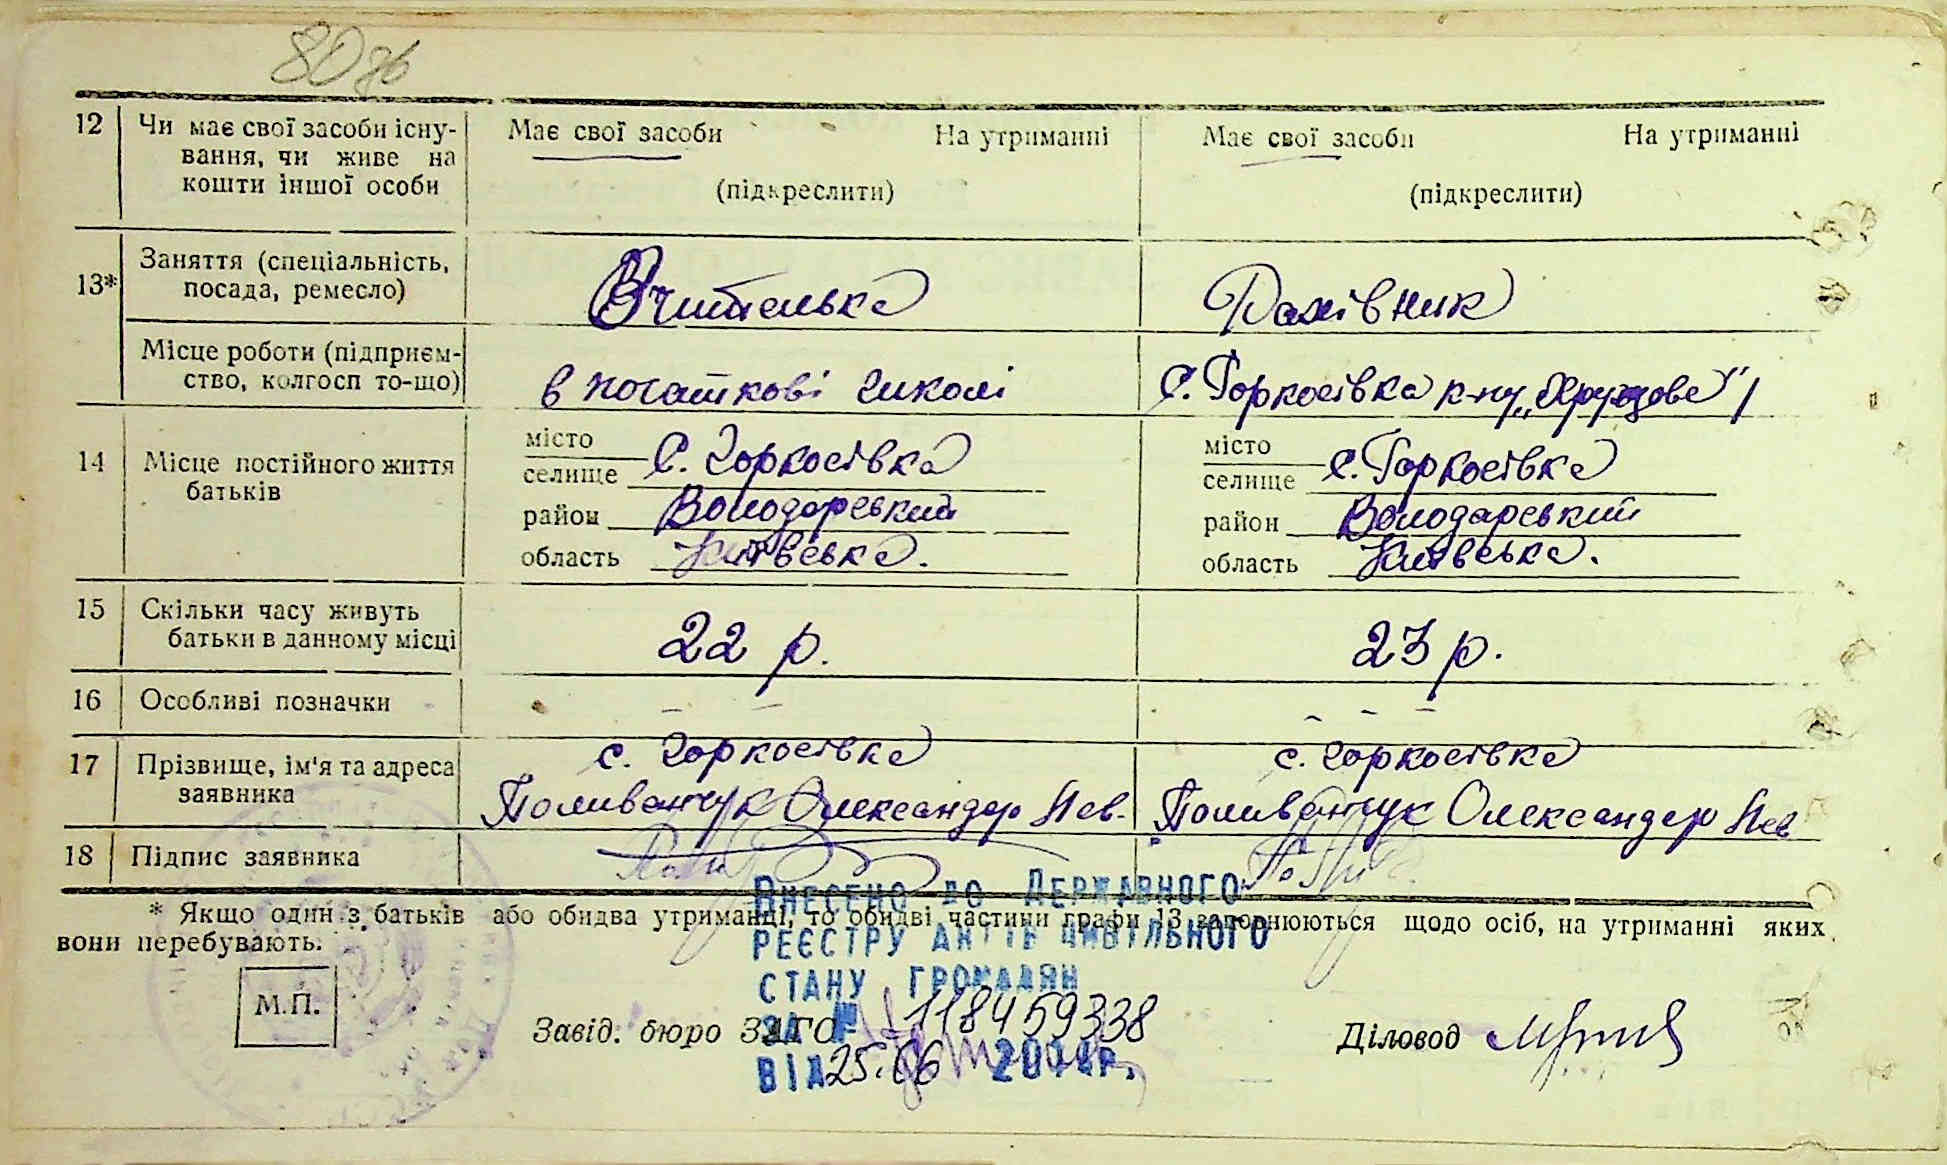 80 зв
12 Чи має свої засоби існу- Має свої засоби На утриманні Має свої засоби На утриманні
вання, чи живе на
кошти іншої особи (підкреслити) (підкреслити)
13* Заняття (спеціальність,
посада, ремесло) Вчителька Рахівник
Місце роботи (підприєм-
ство, колгосп то-що) в початкові школі с. Горкосівка к-пу
14 Місце постійного життя
батьків
місто
селище с. Горкосівка
район Володарський
область Київська.
місто
селище с. Горкосівка
район Володарський
область Київська.
15 Скільки часу живуть
батьки в данному місці 22 р. 23 р.
16 Особливі позначки - - - - -
17 Прізвище, ім'я та адреса
заявника
с. Горкосівка с. Горкосівка
Поливанчук Олександер Лев. Поливанчук Олександер Лев
18 Підпис заявника
* Якщо один з батьків або обидва утриманці, то обидві частини графи 13 заповнюються щодо осіб, на утриманні яких
вони перебувають.
Внесено до Державного
реєстру актів цивільного
стану громадян
за № 118459338
від 25.06
М.П.
Завід. бюро ЗАГС
Діловод